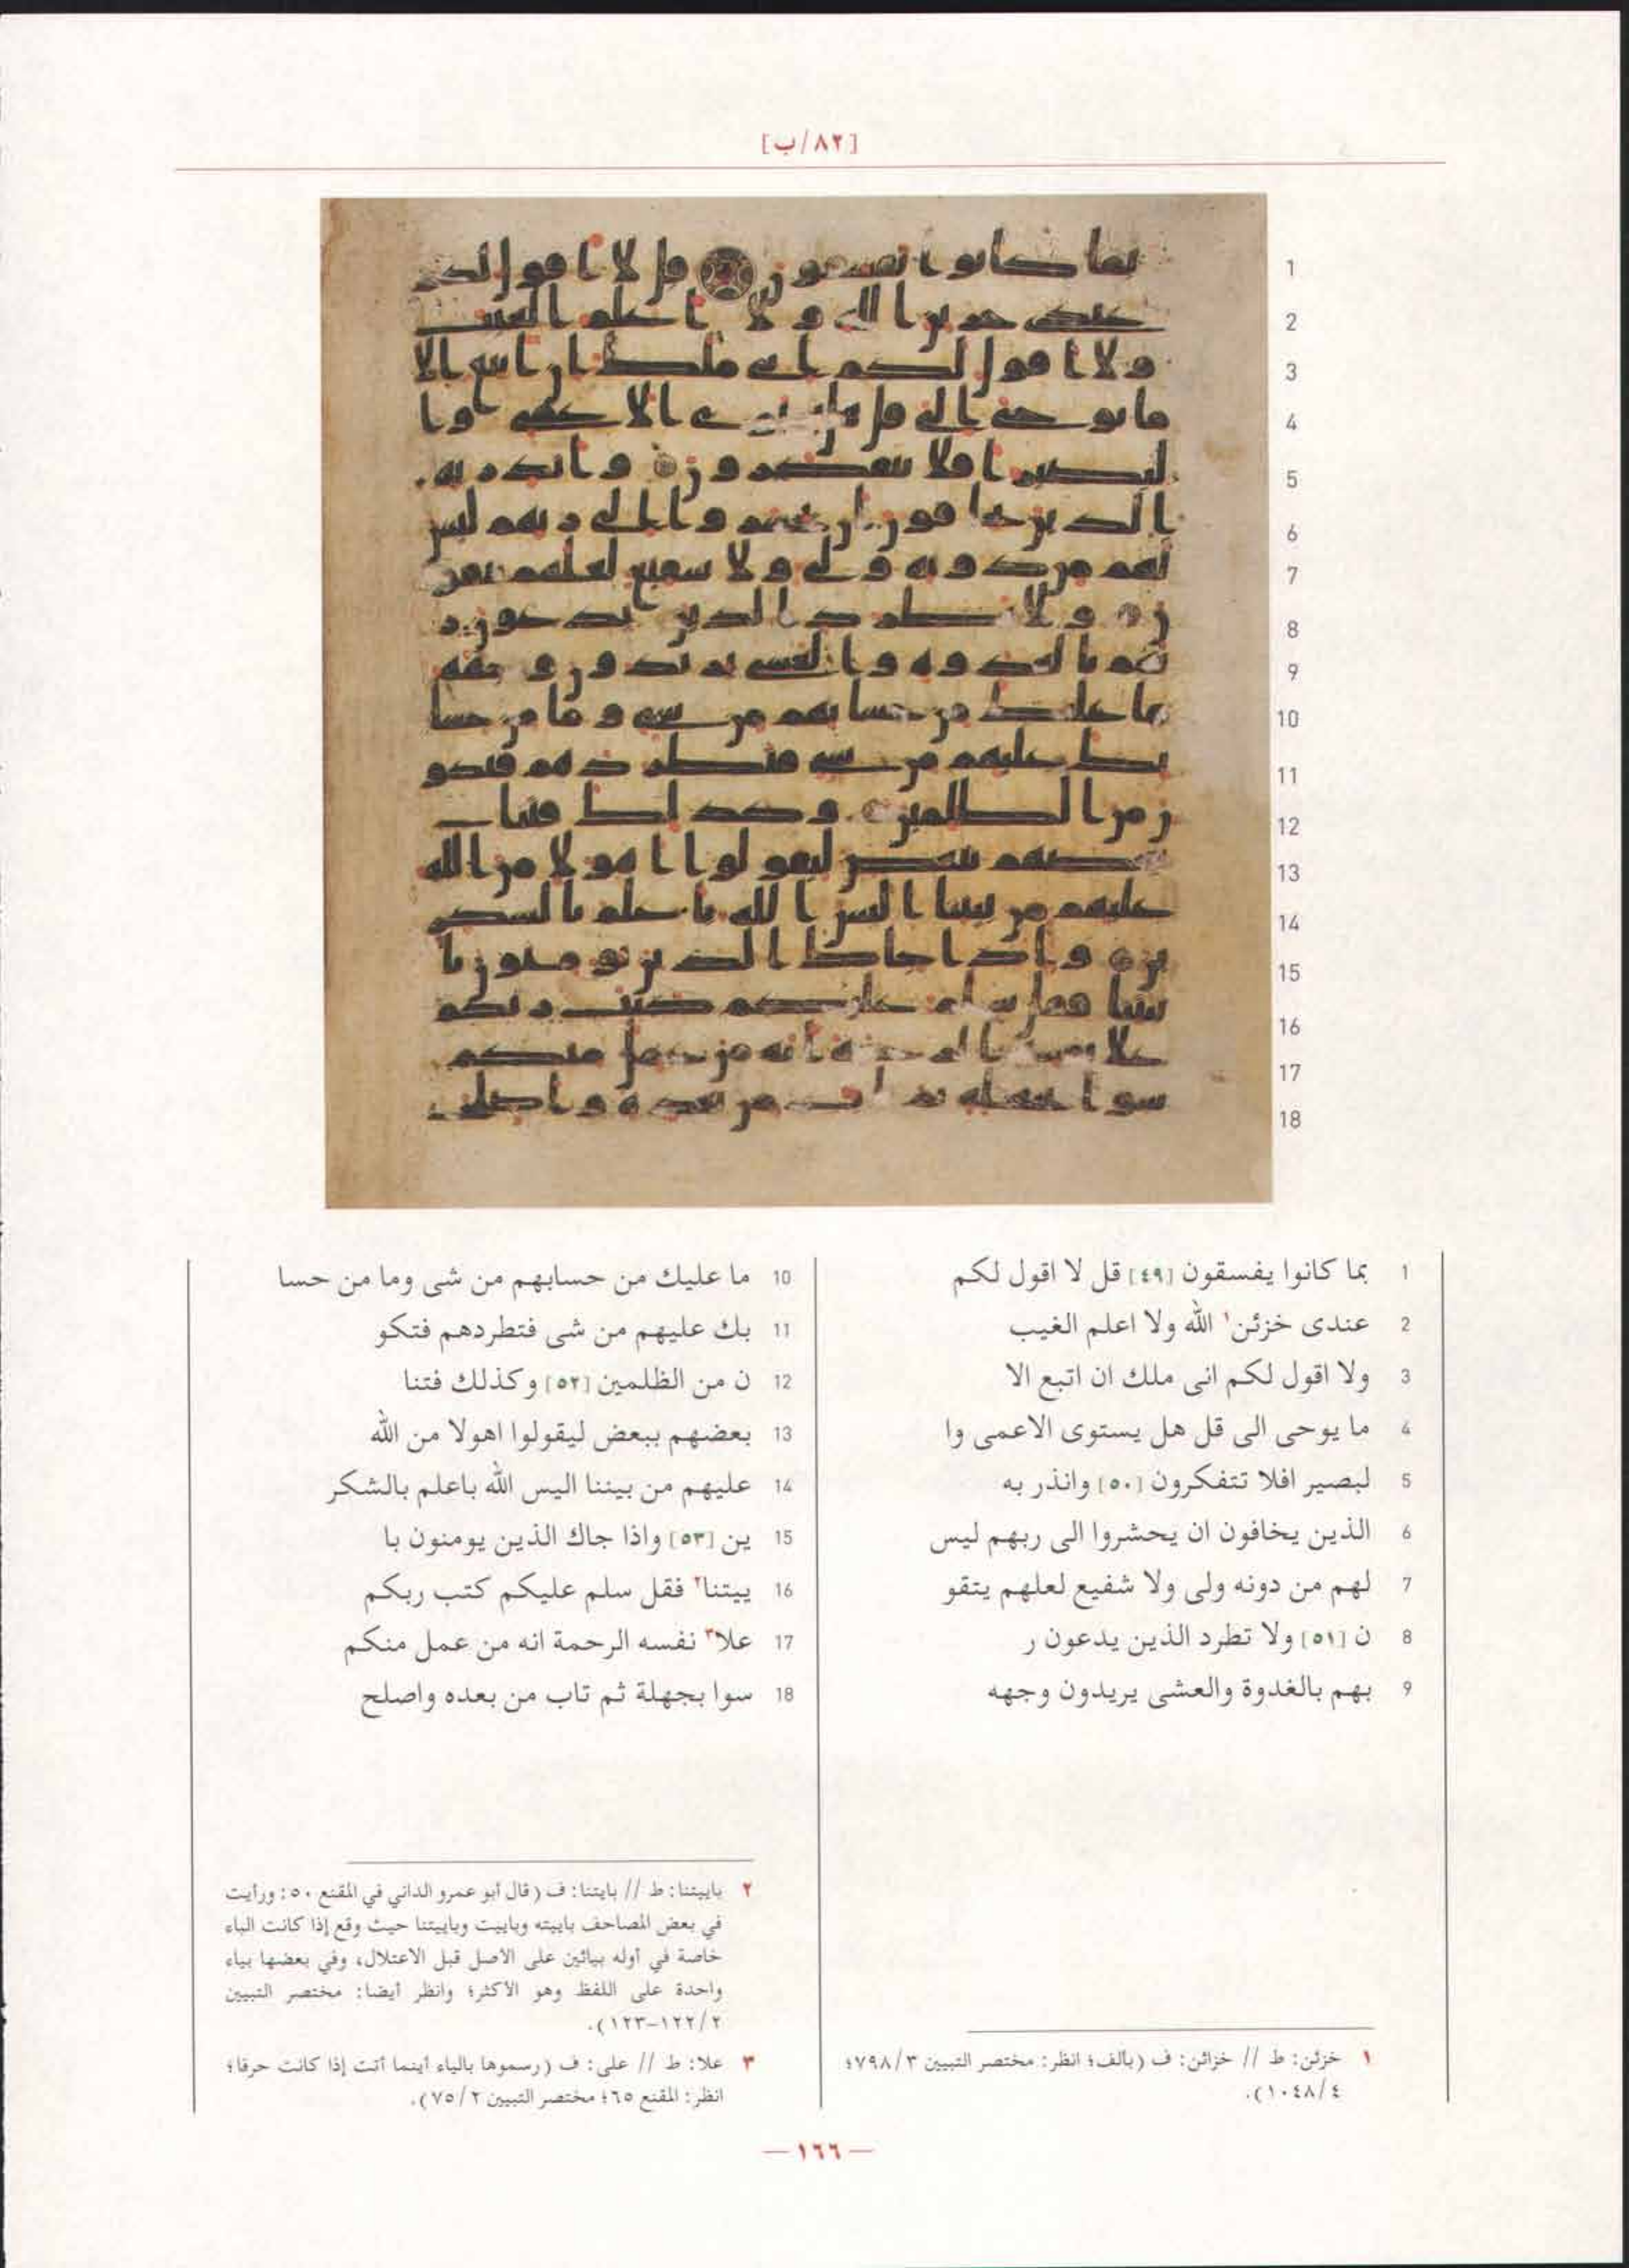 [٨٢/ب]
1 بما كانوا يفسقون [٤٩] قل لا اقول لكم
2 عندى خزئن١ الله ولا اعلم الغيب
3 ولا اقول لكم انى ملك ان اتبع الا
4 ما يوحى الى قل هل يستوى الاعمى وا
5 لبصير افلا تتفكرون [٥٠] وانذر به
6 الذين يخافون ان يحشروا الى ربهم ليس
7 لهم من دونه ولى ولا شفيع لعلهم يتقو
8 ن [٥١] ولا تطرد الذين يدعون ر
9 بهم بالغدوة والعشى يريدون وجهه
10 ما عليك من حسابهم من شى وما من حسا
11 بك عليهم من شى فتطردهم فتكو
12 ن من الظلمين [٥٢] وكذلك فتنا
13 بعضهم ببعض ليقولوا اهولا من الله
14 عليهم من بيننا اليس الله باعلم بالشكر
15 ين [٥٣] واذا جاك الذين يومنون با
16 ييتنا٢ فقل سلم عليكم كتب ربكم
17 علا٣ نفسه الرحمة انه من عمل منكم
18 سوا بجهلة ثم تاب من بعده واصلح
١ خزئن: ط // خزائن: ف (بألف؛ انظر: مختصر التبيين ٧٩٨/٣؛
١٠٤٨/٤).
٢ باييتنا: ط // بايتنا: ف (قال أبو عمرو الداني في المقنع ٥٠: ورأيت
في بعض المصاحف باييته وباييت وباييتنا حيث وقع إذا كانت الباء
خاصة في أوله بيائين على الاصل قبل الاعتلال، وفي بعضها بياء
واحدة على اللفظ وهو الأكثر؛ وانظر أيضا: مختصر التبيين
١٢٢/٢-١٢٣).
٣ علا: ط // على: ف (رسموها بالياء أينما أتت إذا كانت حرفا؛
انظر: المقنع ٦٥؛ مختصر التبيين ٧٥/٢).
— ١٦٦ —